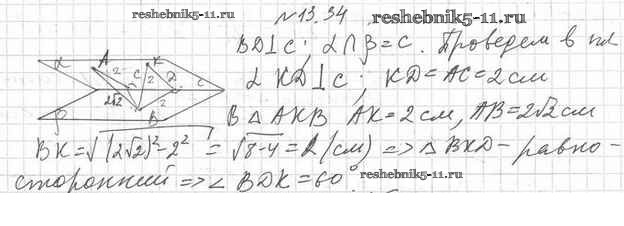 reshebnik5-11.ru
№13.34
reshebnik5-11.ru
BD⊥c; α∩β=c. Проведем в пл
α KD⊥c; KD=AC=2см
В △AKB AK=2см, AB=2√2см
BK=√((2√2)²-2²)=√8-4=2(см) => △BKD-равно-
сторонний => ∠BDK=60°
reshebnik5-11.ru
α
A
K
2
C
2
D
c
2√2
2
B
β